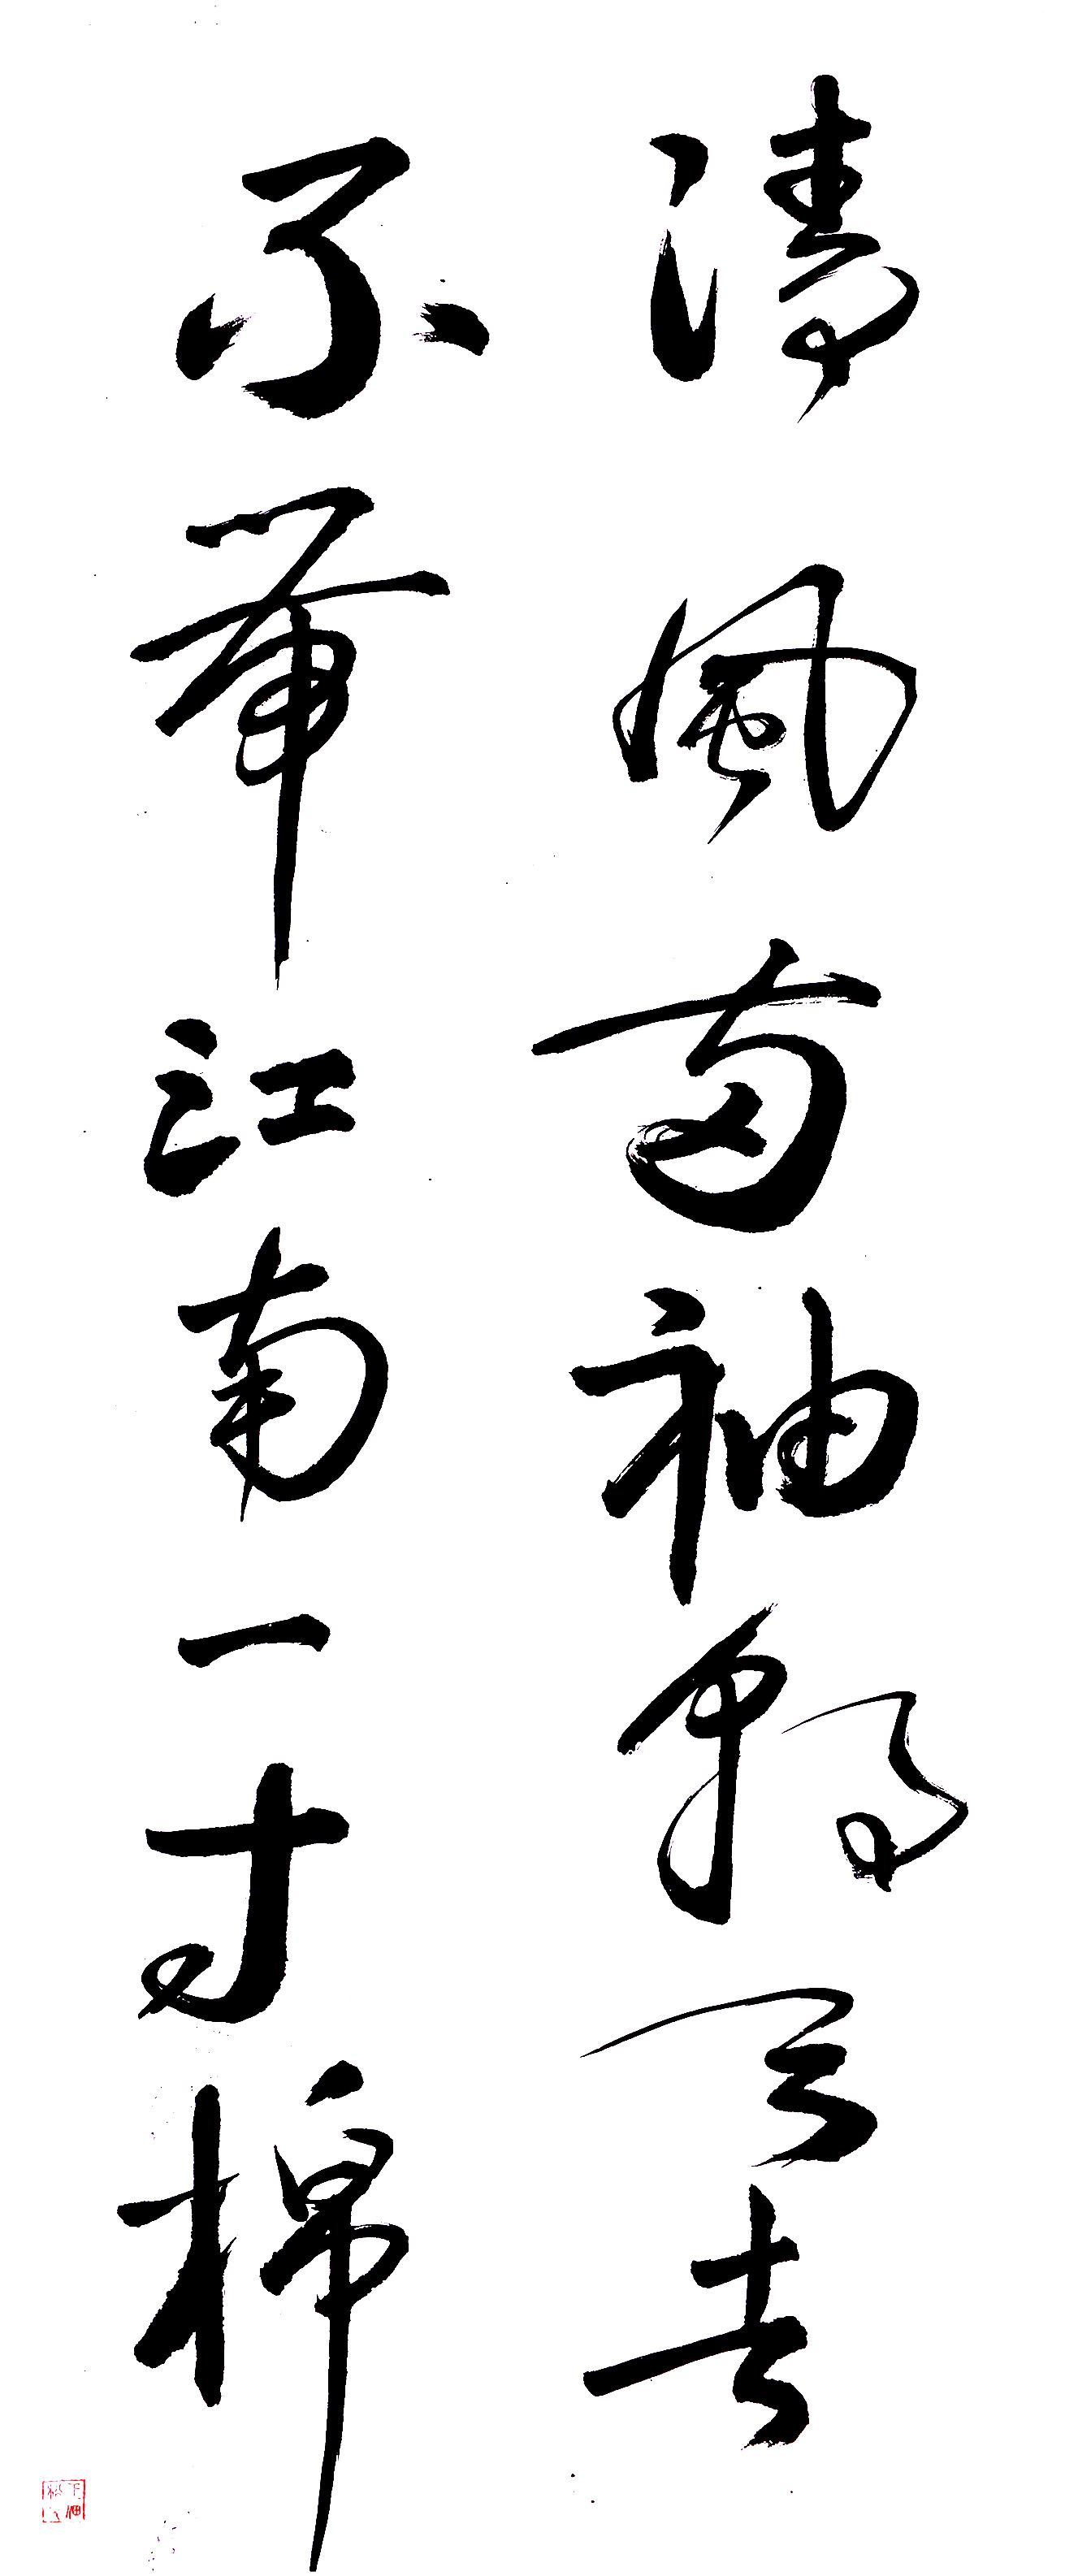 清風兩袖朝天去
不帶江南一寸棉